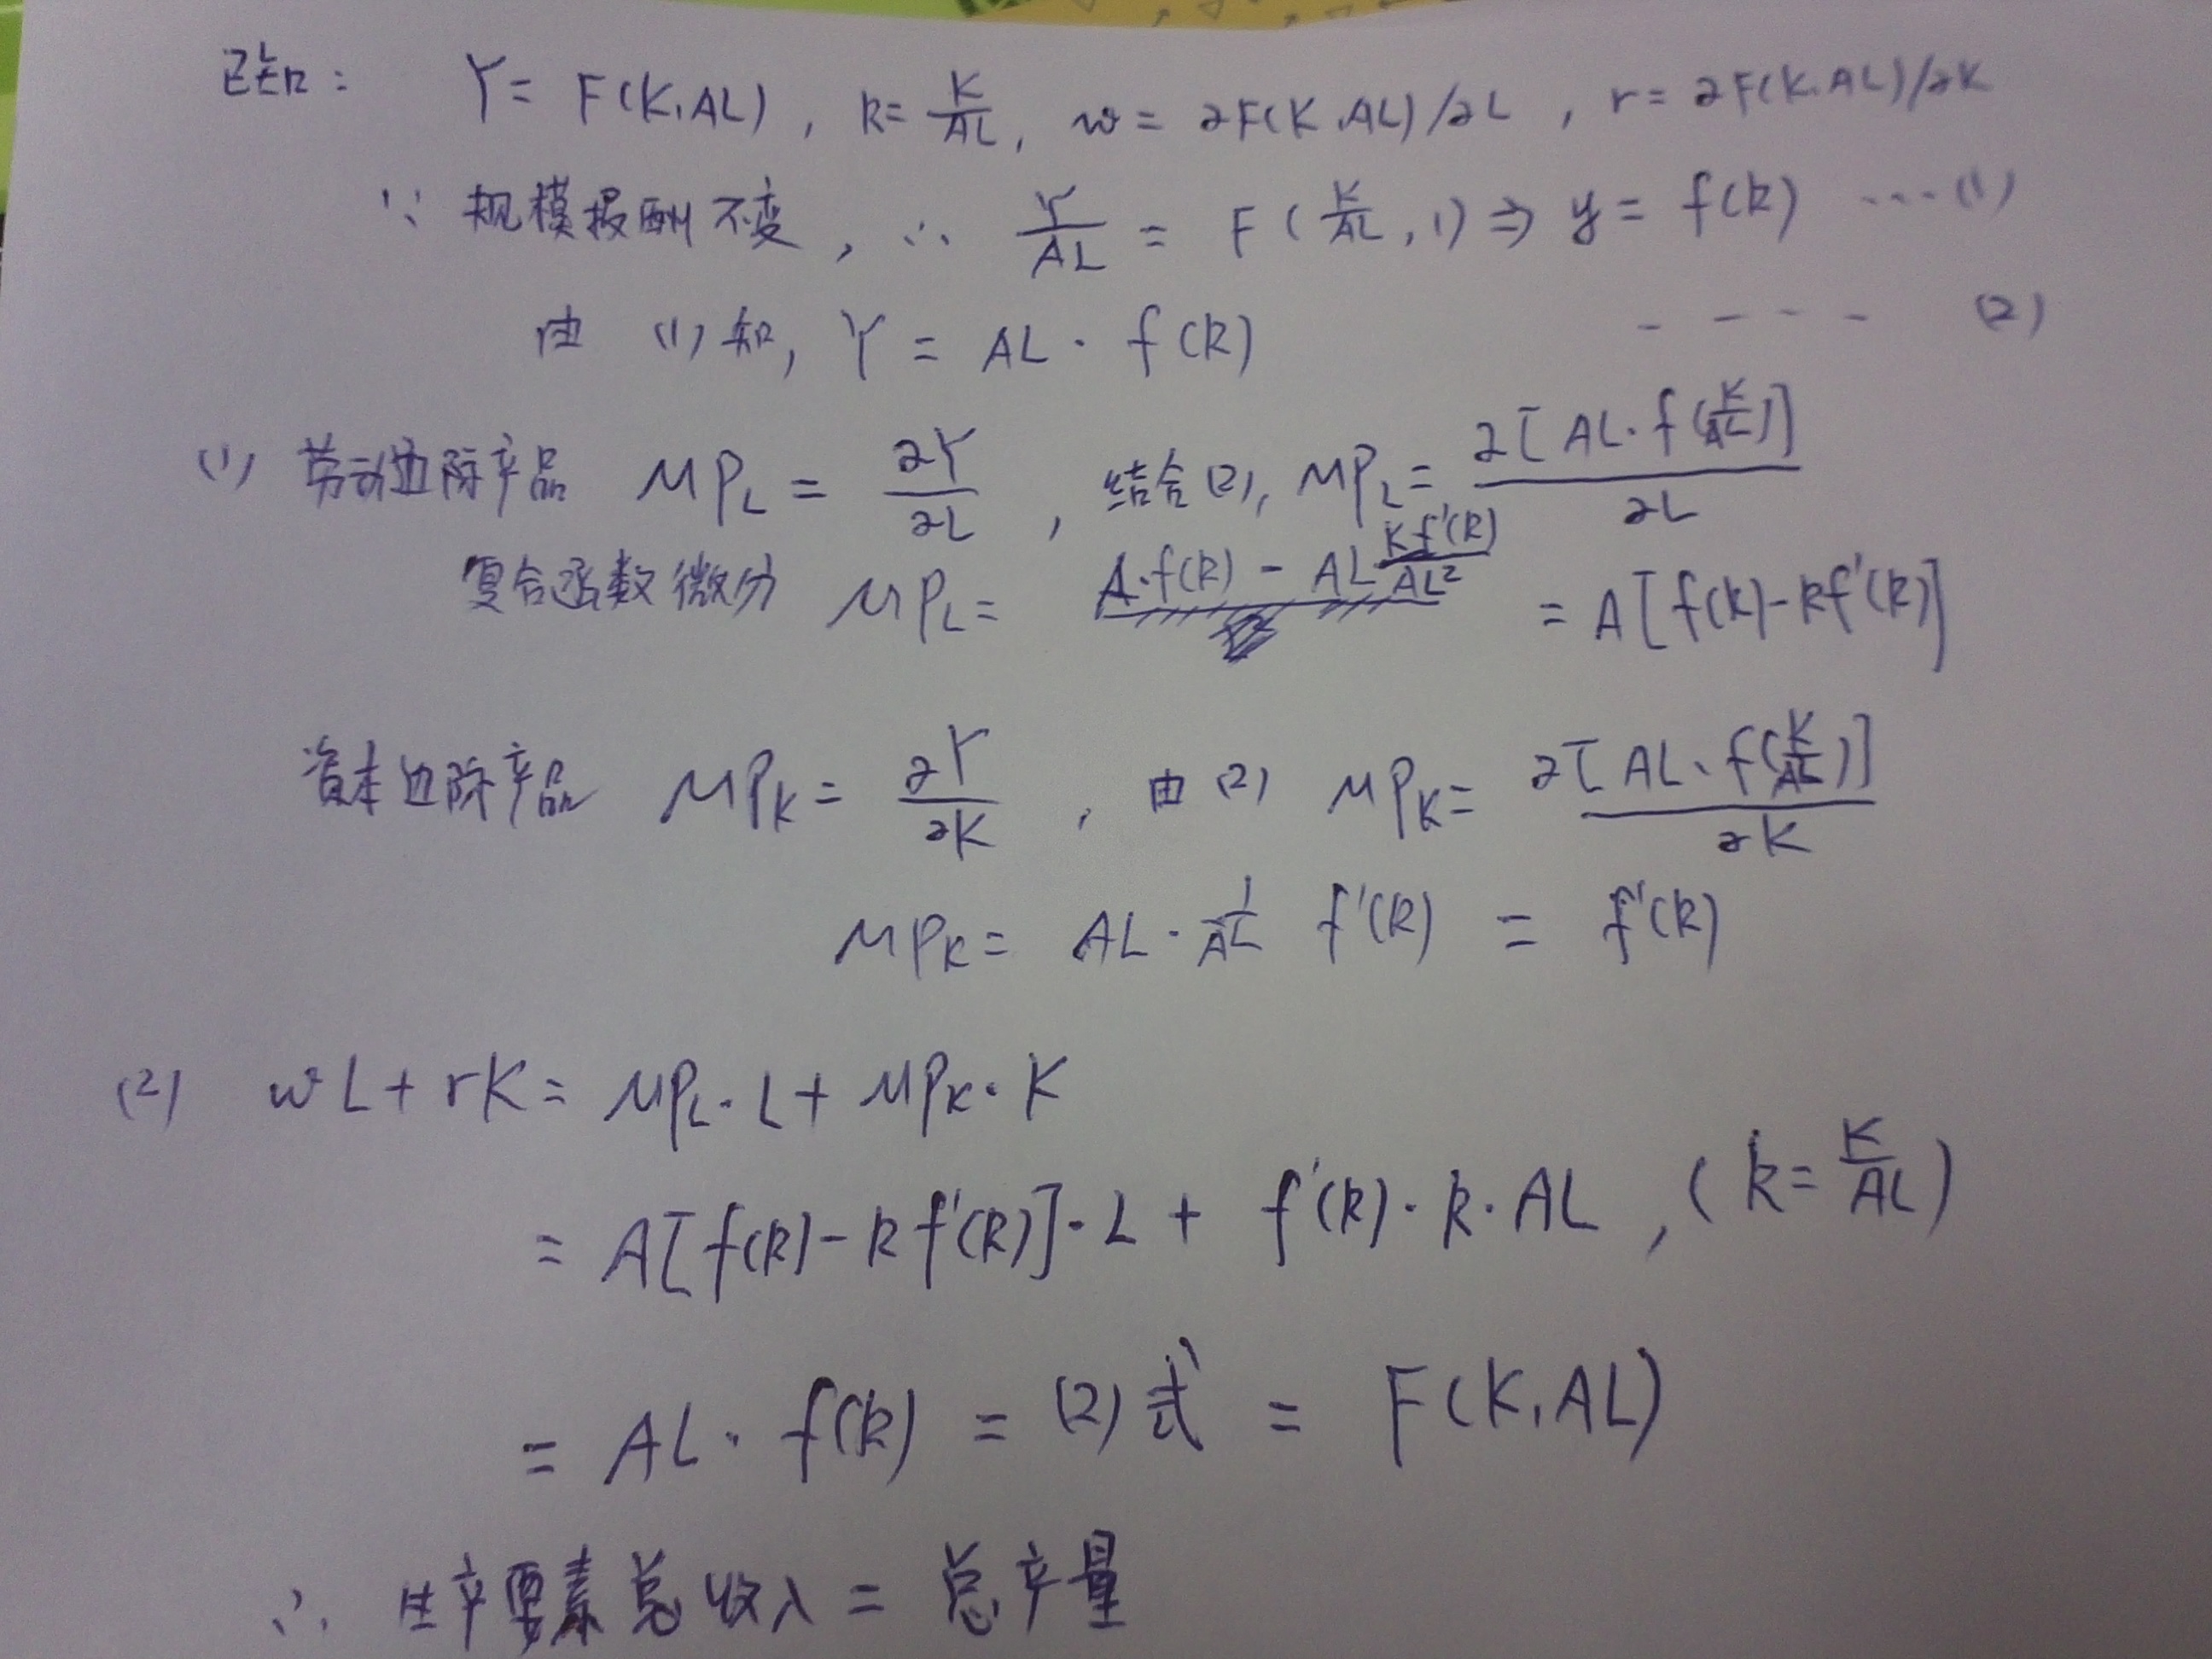 已知: Y = F(K,AL), k = K/AL, w = ∂F(K,AL)/∂L, r = ∂F(K,AL)/∂K
∵ 规模报酬不变, ∴ Y/AL = F(K/AL, 1) ⇒ y = f(k) ---- (1)
由 (1) 知, Y = AL · f(k) ---- (2)
(1) 劳动边际产品 MPL = ∂Y/∂L, 结合(2), MPL = ∂[AL·f(K/AL)]/∂L
复合函数微分 MPL = A·f(k) - AL Kf'(k)/AL² = A[f(k)-kf'(k)]
资本边际产品 MPK = ∂Y/∂K, 由(2) MPK = ∂[AL·f(K/AL)]/∂K
MPK = AL · 1/AL f'(k) = f'(k)
(2) wL + rK = MPL·L + MPK·K
= A[f(k)-kf'(k)]·L + f'(k)·k·AL, (k = K/AL)
= AL · f(k) = (2)式 = F(K,AL)
∴ 生产要素总收入 = 总产量